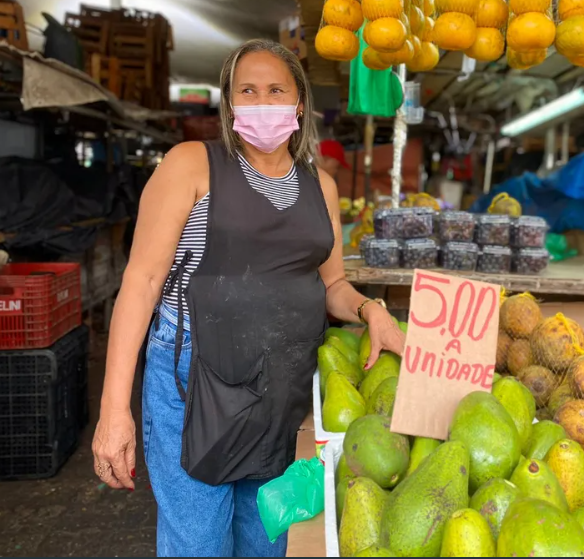 5,00
A
UNIDADE
ELINI